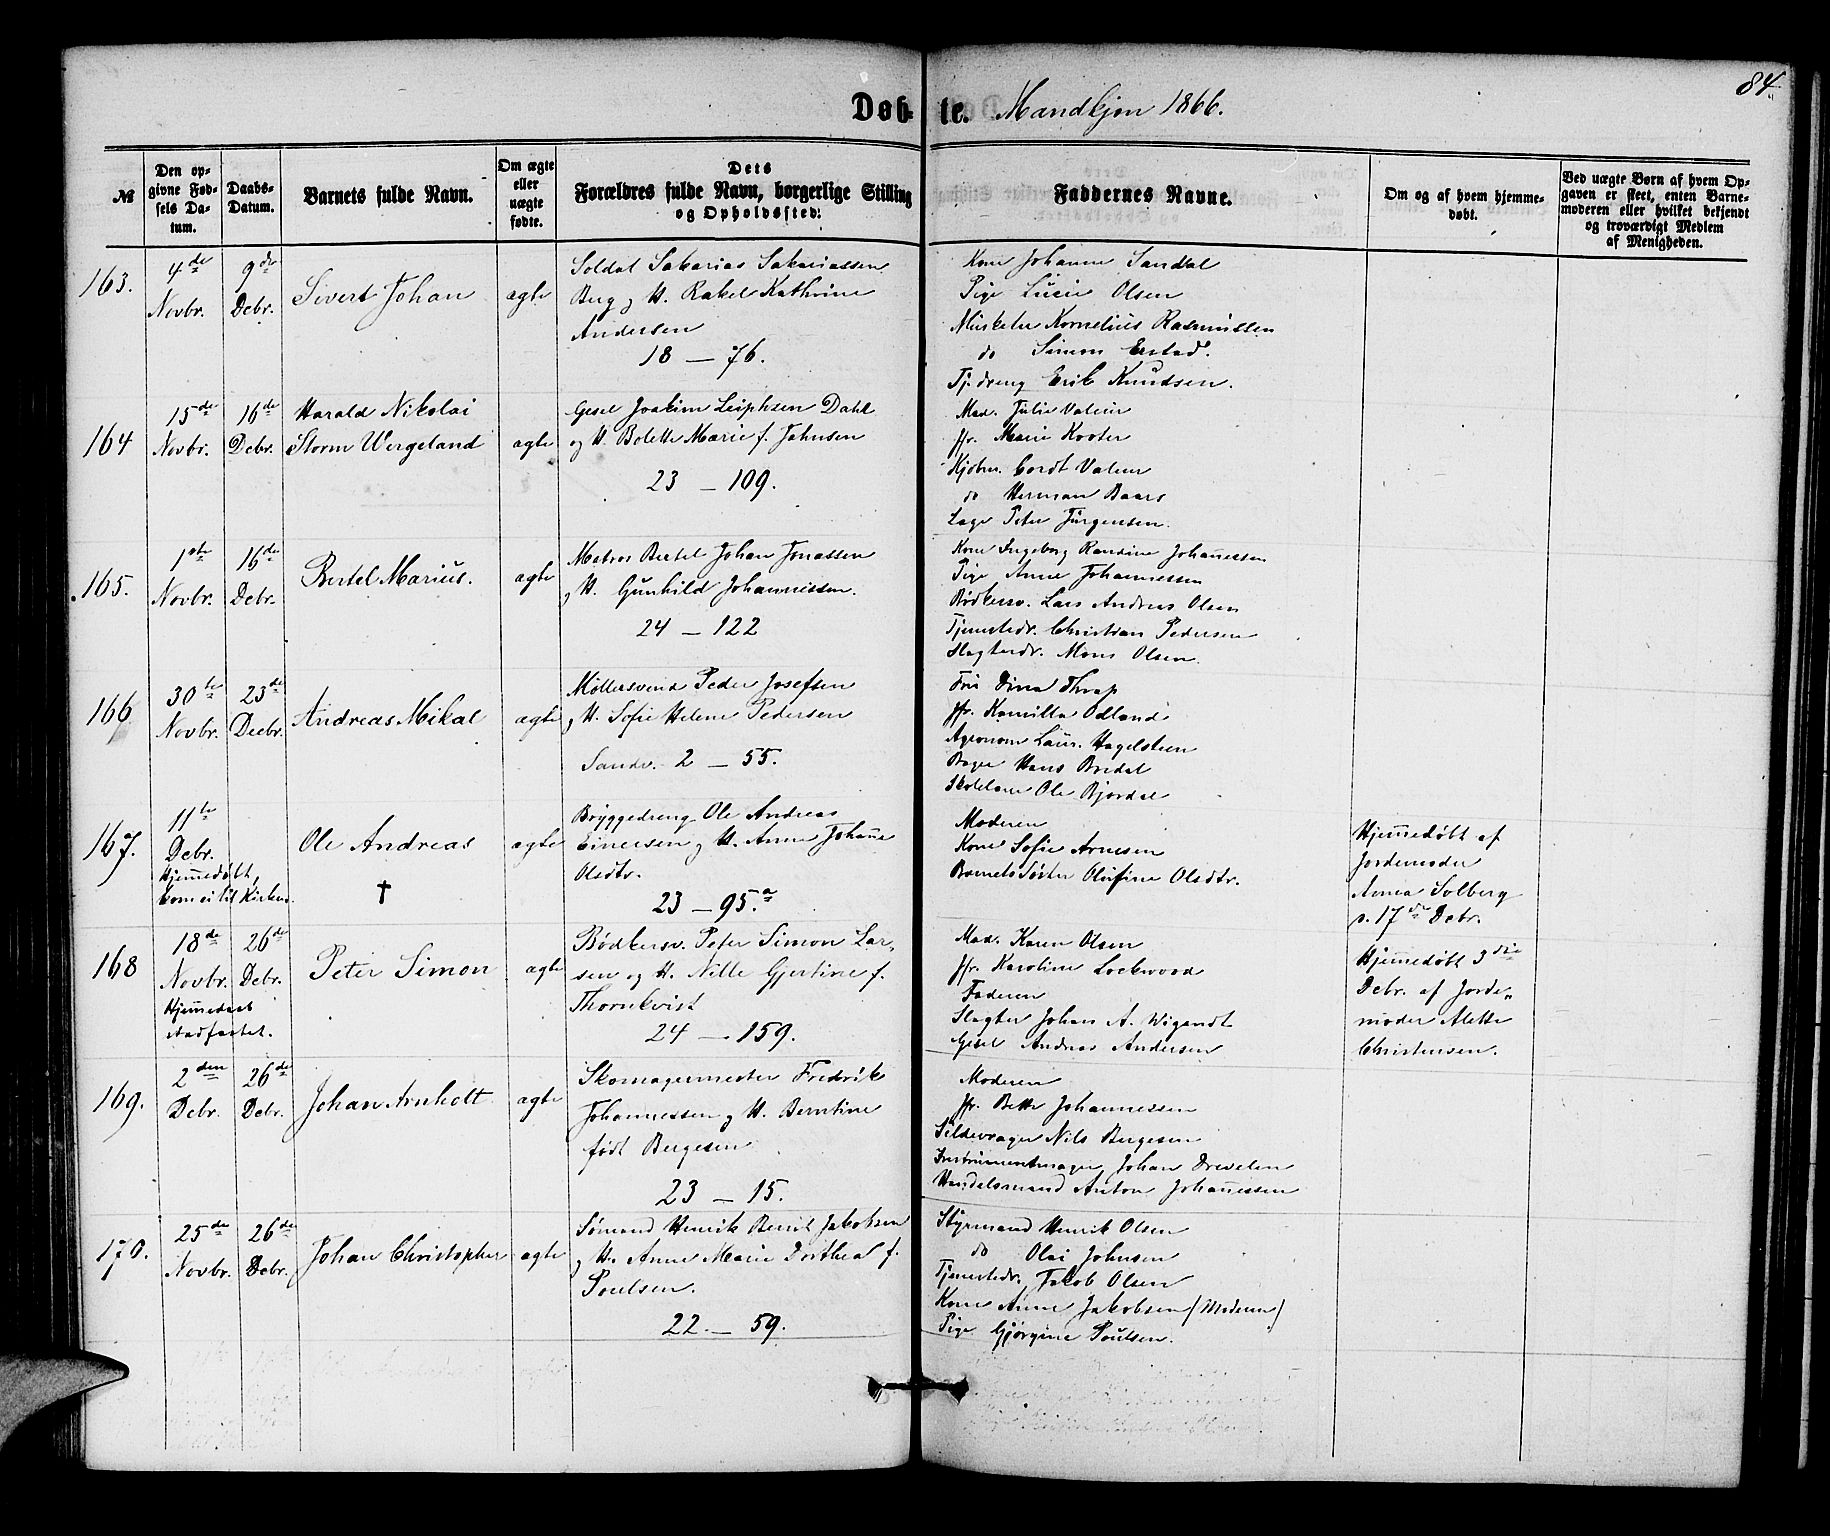 84.
Døbte. Mandkjøn 1866.
№
Den opgivne Fødsels Datum.
Daabs-Datum.
Barnets fulde Navn.
Om ægte eller uægte fødte.
Dets Forældres fulde Navn, borgerlige Stilling og Opholdssted.
Faddernes Navne.
Om og af hvem hjemmedøbt.
Ved uægte Børn af hvem Opgaven er skeet, enten Barnemoderen eller hvilket bekjendt og troværdigt Medlem af Menigheden.
163.
4de Novbr.
9de Debr.
Sivert Johan
ægte
Soldat Sakarias Sakariassen
Berg og H. Rakel Kathrine
Andersen
18 — 76.
Kone Johanne Sandal
Pige Lucie Olsen
Musketer Kornelius Rasmussen
do Simon Erstad.
Tj.dreng Erik Knudsen.
164
15de Novbr.
16de Debr.
Harald Nikolai
Storm Wergeland
ægte
Gesel Joakim Leiphsen Dahl
og H. Bolette Marie f. Johnsen
23 — 109.
Mad. Julie Valeur
jfr. Marie Kooter
Kjøbm. Cordt Valeur
do Herman Baars
Peter Jürgensen.
165.
1ste Novbr.
16de Debr.
Bertel Marius.
ægte
Matros Bertel Johan Jonassen
og H. Gunhild Johannessen.
24 — 122
Kone Ingeborg Randine Johanessen
Pige Anne Johannessen
Bødkersv. Lars Andreas Olsen
Tjenestedr. Christian Pedersen
Slagterdr. Mons Olsen.
166
30te Novbr.
23de Decbr.
Andreas Mikal
ægte
Møllersvend Peder Josefsen
og H. Sofie Helene Pedersen
Sandv. 2 — 55.
Dina Thrap
jfr. Kamilla Odland
Agronom Laur. Hagelsteen
Bager Hans Bredal
Skolelærer Ole Bjordal
167.
11te Debr.
Hjemmedøbt,
Kom ei til Kirken.
Ole Andreas
†
ægte
Bryggedreng Ole Andreas
Einersen og H. Anne Johanne
Olsdtr.
23 — 95.a
Moderen
Kone Sofie Arnesen
Barnets Søster Olufine Olsdtr.
Hjemmedøbt af
Jordemoder
Anna Solberg
d. 17de Debr.
168
18de Novbr.
26de Debr.
Hjemmedaab
stadfæstet.
Peter Simon
ægte
Bødkersv. Peter Simon Lar-
sen og H. Nille Gjertine f.
Thornkvist
24 — 159.
Mad. Karen Olsen
jfr. Karoline Lockwood
Faderen
Slagter Johan A. Wigandt
Gesel Andreas Andersen
Hjemmedøbt 3die
Debr. af Jorde-
moder Alette
Christensen.
169.
2den Debr.
26de Debr.
Johan Arnholt
ægte
Skomagermester Fredrik
Johannessen og H. Berntine
født Bergesen
23 — 15.
Moderen
jfr. Bette Johannessen
Sildevrager Nils Bergesen
Instrumentmager Johan Drevelen
Handelsmand Anton Johannessen
170.
25de Novbr.
26de Debr.
Johan Christopher
ægte
Sømand Henrik Berat Jakobsen
og H. Anne Marie Dorthea f.
Poulsen.
22. — 59.
Styrmand Henrik Olsen
do Olai Johnsen
Tjenestedr. Jakob Olsen
Kone Anne Jakobsen (Moderen)
Pige Gjørgine Poulsen.